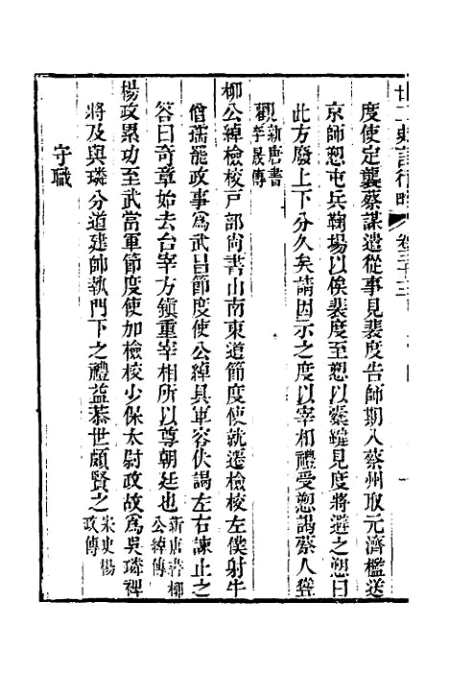 廿二史言行略 卷三十三
度使定襲蔡謀遣從事見裴度告師期入蔡州取元濟檻送
京師愬屯兵鞠場以俟裴度至愬以櫜鞬見度將避之愬曰
此方廢上下分久矣請因示之度以宰相禮受愬謁蔡人聳
觀新唐書李晟傳
柳公綽檢校戶部尚書山南東道節度使就遷檢校左僕射牛
僧孺罷政事為武昌節度使公綽具軍容伏謁左右諫止之
答曰奇章始去台宰方鎮重宰相所以尊朝廷也新唐書柳公綽傳
楊政累功至武當軍節度使加檢校少保太尉政故為吳璘裨
將及與璘分道建帥執門下之禮益恭世頗賢之宋史楊政傳
守職